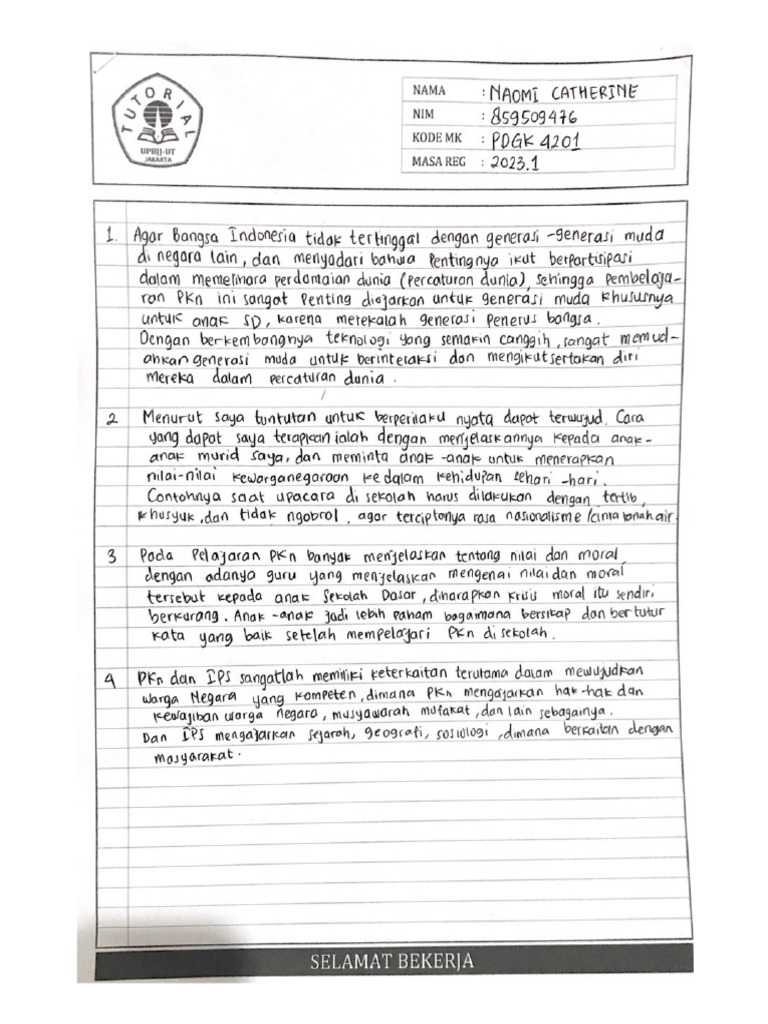 TUTORIAL
UPBJJ-UT
JAKARTA
NAMA : NAOMI CATHERINE
NIM : 859509476
KODE MK : PDGK 4201
MASA REG : 2023.1
1. Agar Bangsa Indonesia tidak tertinggal dengan generasi-generasi muda
di negara lain, dan menyadari bahwa pentingnya ikut berpartisipasi
dalam memelihara perdamaian dunia (percaturan dunia), sehingga pembelaja-
ran PKn ini sangat penting diajarkan untuk generasi muda khususnya
untuk anak SD, karena merekalah generasi penerus bangsa.
Dengan berkembangnya teknologi yang semakin canggih, sangat memud-
ahkan generasi muda untuk berinteraksi dan mengikutsertakan diri
mereka dalam percaturan dunia.
2 Menurut saya tuntutan untuk berperilaku nyata dapat terwujud. Cara
yang dapat saya terapkan ialah dengan menjelaskannya kepada anak-
anak murid saya, dan meminta anak-anak untuk menerapkan
nilai-nilai kewarganegaraan ke dalam kehidupan sehari-hari.
Contohnya saat upacara di sekolah harus dilakukan dengan tertib,
khusyuk, dan tidak ngobrol, agar terciptanya rasa nasionalisme/cinta tanah air.
3 Pada Pelajaran PKn banyak menjelaskan tentang nilai dan moral,
dengan adanya guru yang menjelaskan mengenai nilai dan moral
tersebut kepada anak Sekolah Dasar, diharapkan krisis moral itu sendiri
berkurang. Anak-anak jadi lebih paham bagaimana bersikap dan bertutur
kata yang baik setelah mempelajari PKn di sekolah.
4 PKn dan IPS sangatlah memiliki keterkaitan terutama dalam mewujudkan
Warga Negara yang kompeten, dimana PKn mengajarkan hak-hak dan
kewajiban warga negara, musyawarah mufakat, dan lain sebagainya.
Dan IPS mengajarkan sejarah, geografi, sosiologi, dimana berkaitan dengan
masyarakat.
SELAMAT BEKERJA